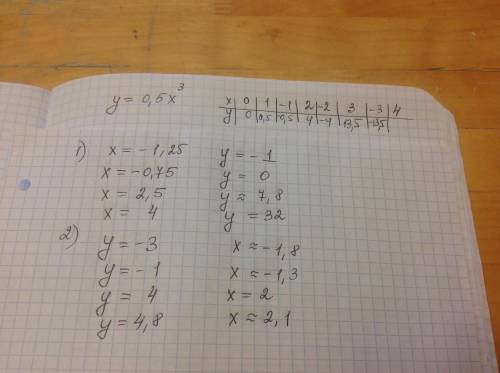 y = 0,5x³
x | 0 | 1 | -1 | 2 | -2 | 3 | -3 | 4
y | 0 | 0,5 | 0,5 | 4 | -4 | 13,5 | -13,5 |
1) x = -1,25 y = -1
x = -0,75 y = 0
x = 2,5 y ≈ 7,8
x = 4 y = 32
2) y = -3 x ≈ -1,8
y = -1 x ≈ -1,3
y = 4 x = 2
y = 4,8 x ≈ 2,1